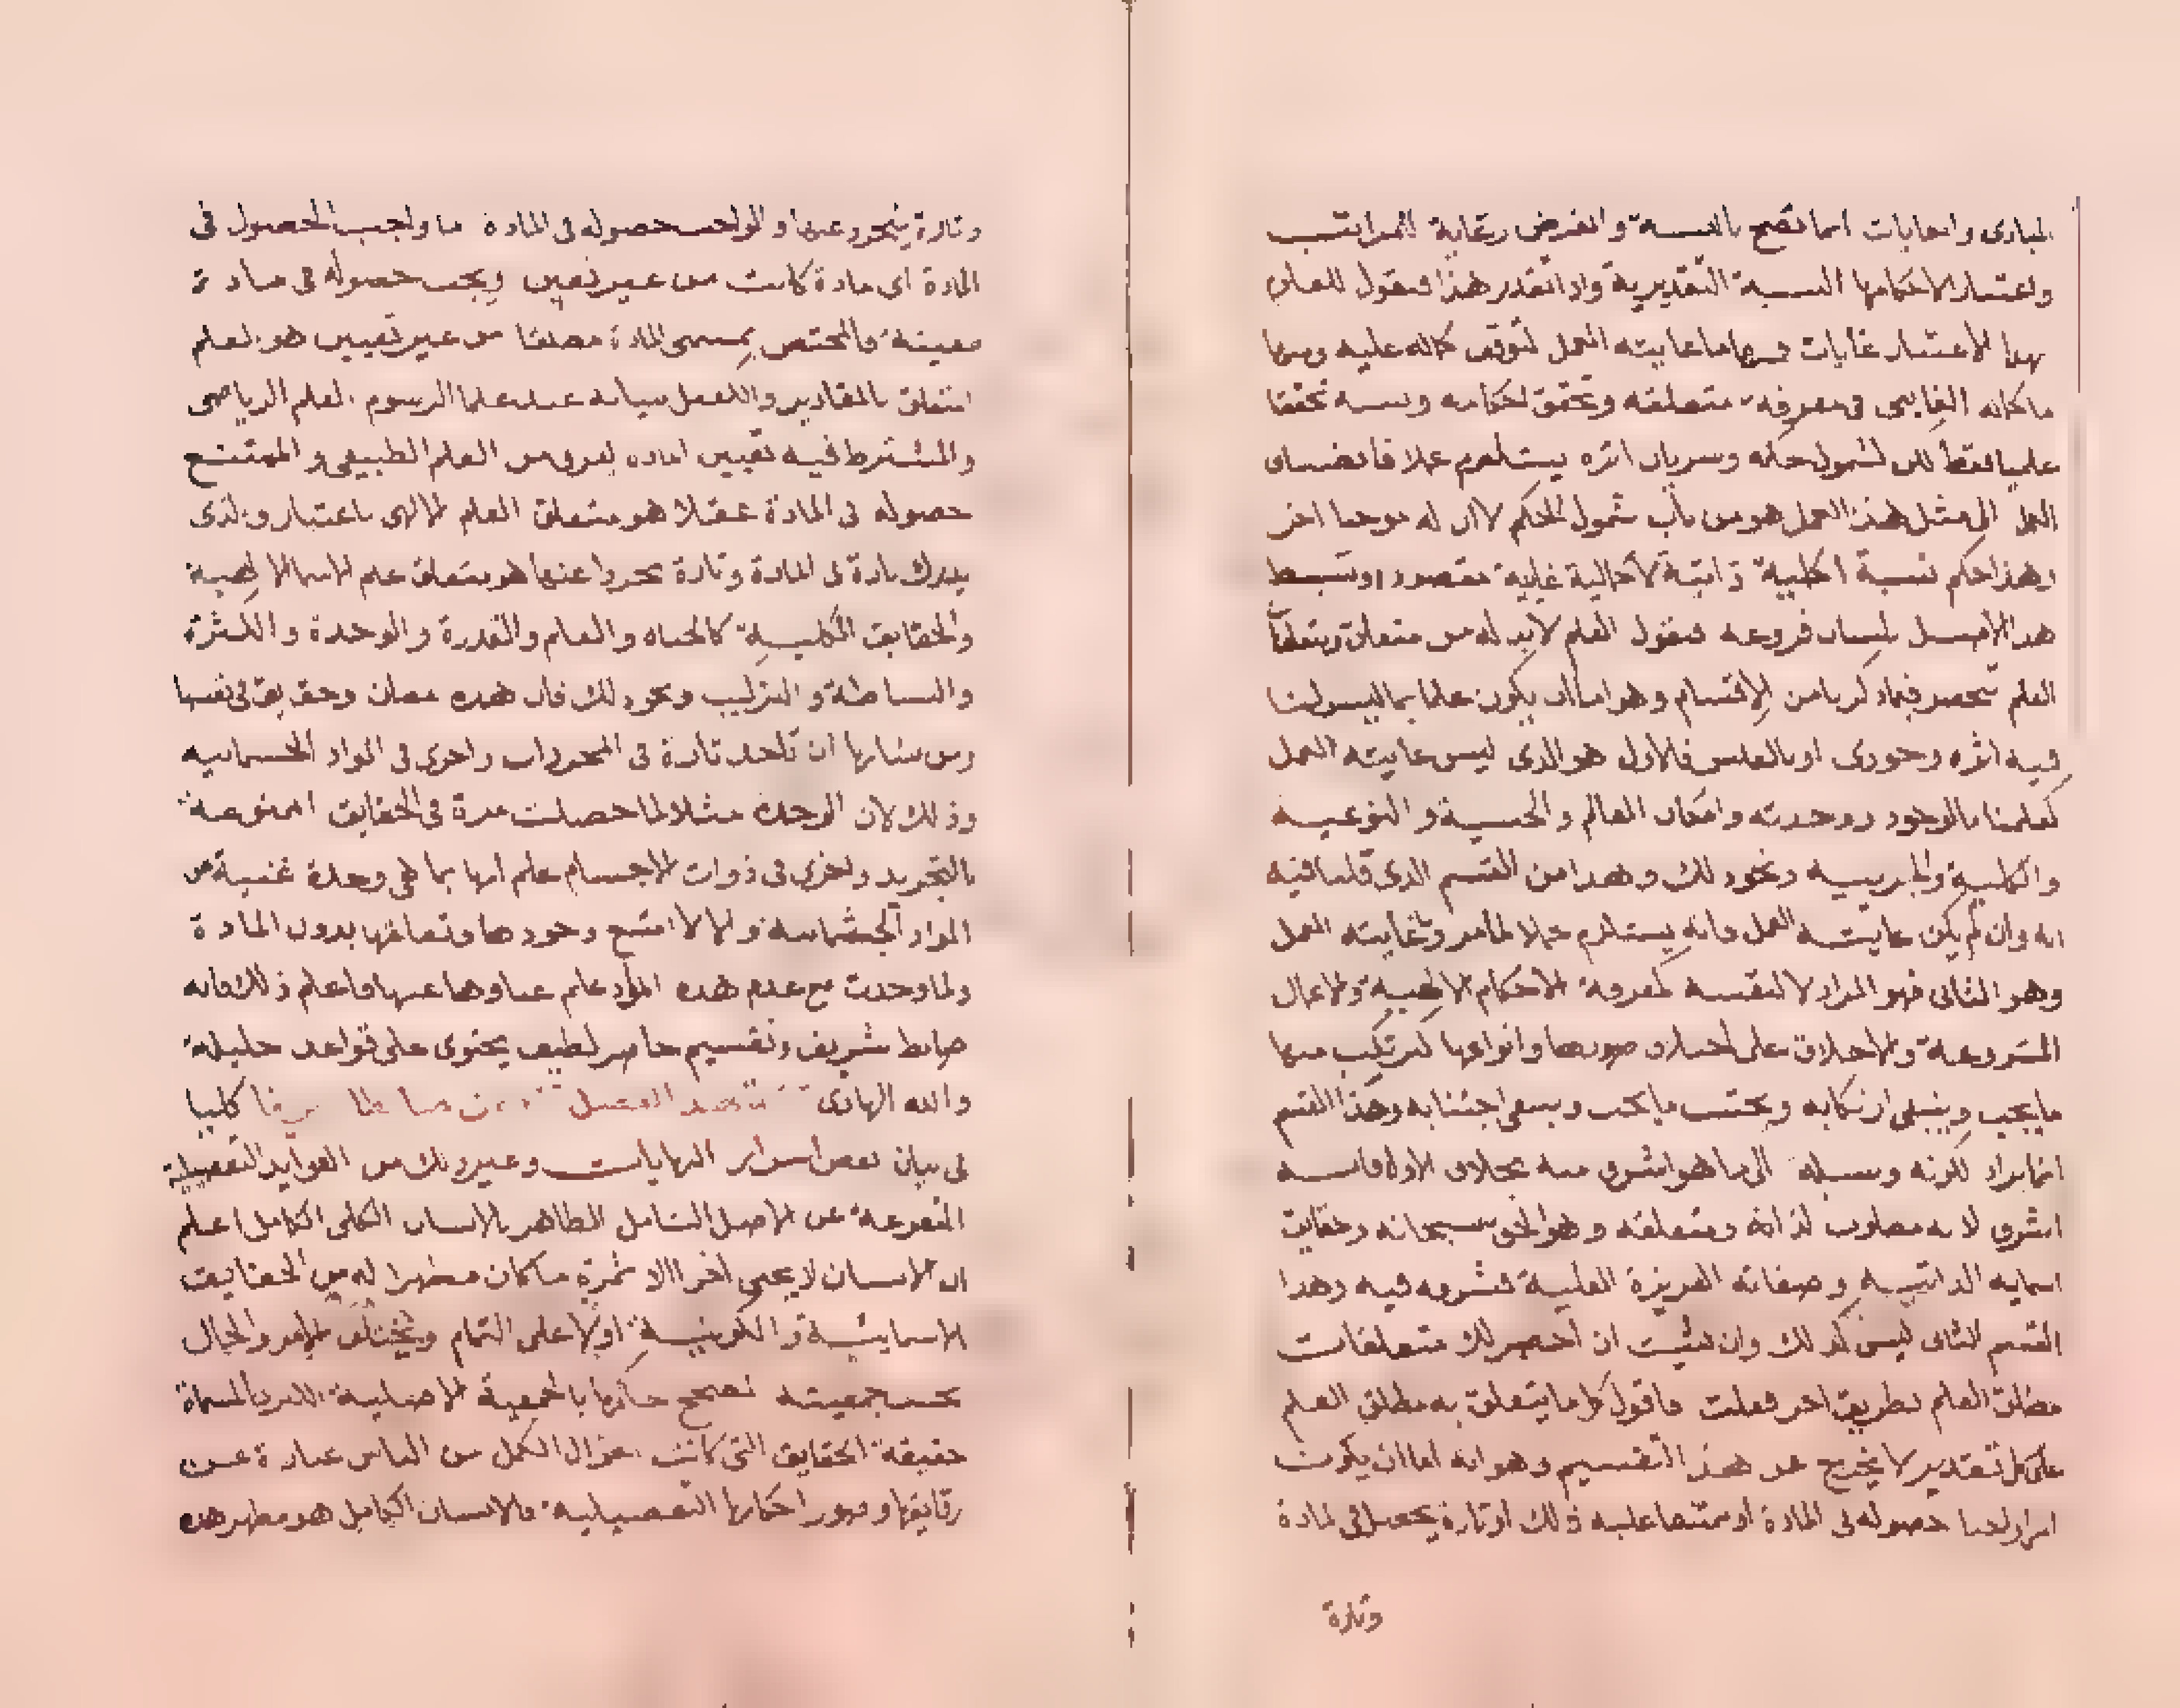 المبادى والغايات انما تصح بالنسبة والفرض رعاية للمراتب
واعتبار الاحكامها النسبية التقديرية واذا تقدر هذا فنقول للعلم
بهذا الاعتبار غايات فمنها ما غايته العمل لتوقف كماله عليه ومنها
ما كماله الغايى فى معرفة متعلقه وتحقق احكامه ونسبه تحققا
علميا فقط لكن لشمول حكمه وسريان اثره يستلزم عملا فانضياف
العمل الى مثل هذا العمل هو من باب شمول الحكم لا ان له موجبا اخر
وهذا حكم نسبة ذاتية لا حالية
هذا الاصل لبيان فروعه فنقول العلم لابد له من متعلق ومتعلق
العلم تنحصر فيما ذكرنا من الاقسام وهو اما ان يكون علما بما ليس لنا
فيه اثر وجودى او بالعكس فالاول هو الذى ليس غايته العمل
كعلمنا بالوجود ووحدته وامكان العالم والجنسية والنوعية
والكلية والجزييه ونحو ذلك وهذا من القسم الذى قلنا فيه
انه وان لم يكن غايته العمل فانه يستلزم عملا لما مر وغايته العمل
وهو الثانى فهو المراد لا لنفسه كمعرفة الاحكام الالهية والاعمال
المشروعة والاخلاق على اختلاف صورها وانواعها ليرتكب منها
ما يجب وينبغى ارتكابه ويجتنب ما يجب وينبغى اجتنابه وهذا القسم
انما يراد لكونه وسيلة الى ما هو اشرف منه بخلاف الاول فانه
اشرف لانه مطلوب لذاته ومتعلقه وهو الحق سبحانه وحقايق
اسمايه الذاتيه وصفاته العزيزة العلية فشرفه فيه وهذا
القسم الثانى ليس كذلك وان شئت ان احصر لك متعلقات
مطلق العلم بطريق اخر فعلت فاقول كل ما يتعلق به مطلق العلم
على كل تقدير لا يخرج عن هذا التقسيم وهو انه اما ان يكون
امرا واجبا حصوله فى المادة او ممتنعا عليه ذلك او تارة يحصل فى المادة
وتارة
وتارة يتجرد عنها والواجب حصوله فى المادة اما واجب الحصول فى
المادة اى مادة كانت من غير تعيين ويجب حصوله فى مادة
معينة فالمختص بمسمى المادة مطلقا من غير تعيين هو العلم
المتعلق بالمقادير والمتكفل ببيانه عند علما الرسوم العلم الرياضى
والمشترط فيه تعيين المادة يعرف من العلم الطبيعى والممتنع
حصوله فى المادة عقلا هو متعلق العلم الالهى باعتبار والذى
يدرك تارة فى المادة وتارة مجردا عنها هو متعلق علم الاسما الالهية
والحقايق الكلية كالحياه والعلم والقدرة والوحدة والكثرة
والبساطة والتركيب ونحو ذلك فان هذه معان وحقايق فى نفسها
ومن شانها ان تاخذ تارة فى المجردات واخرى فى المواد الجسمانيه
وذلك لان الوحدة مثلا لما حصلت مرة فى الحقايق
بالتجريد واخرى فى ذوات الاجسام علم انها بما هى وحدة غنية عن
المواد الجسمانية والا لامتنع وجودها وتعلقها بدون المادة
ولما وجدت مع عدم هذه المواد علم غناوها عنها فاعلم ذلك فانه
ضابط شريف وتقسيم حاصر لطيف يحتوى على قواعد جليلة
والله الهادى كليا
فى بيان بعض اسرار النهايات وغير ذلك من الفوايد التفصيلية
المتفرعة عن الاصل الشامل الظاهر بالانسان الكلى الكامل اعلم
ان الانسان لا يجنى اخرا الا ثمرة ما كان مظهرا له من الحقايق
الاسمايئية والكونية اولا على التمام ويختلف الامر والحال
بحسب جمعيته بصحيح بالجمعية الاصلية المسماة
حقيقة الحقايق التى كانت احوال الكمل من الناس عبارة عن
رقايقها وظهور احكامها التفصيلية فالانسان الكامل هو مظهر هذه